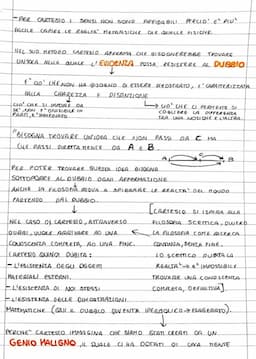 -PER CARTESIO I SENSI NON SONO AFFIDABILI, PERCIÒ È PIÙ
FACILE CAPIRE LE REALTÀ METAFISICHE CHE QUELLE FISICHE.
NEL SUO METODO CARTESIO AFFERMA CHE BISOGNEREBBE TROVARE
UN'IDEA ALLA QUALE L'EVIDENZA POSSA RESISTERE AL DUBBIO
È CIÒ CHE NON HA BISOGNO DI ESSERE DIMOSTRATO, È CARATTERIZZATA
DALLA CHIAREZZA E DISTINZIONE
CIÒ CHE CI PERMETTE DI
COGLIERE LA DIFFERENZA
TRA UNA NOZIONE E L'ALTRA.
"BISOGNA TROVARE UN'IDEA CHE NON PASSI DA C MA
CHE PASSI DIRETTAMENTE DA A E B.
A C B
PER POTER TROVARE QUESTA IDEA BISOGNA
SOTTOPORRE AL DUBBIO OGNI AFFERMAZIONE
ANCHE LA FILOSOFIA PROVA A SPIEGARE LE REALTÀ DEL MONDO
PARTENDO DAL DUBBIO.
[CARTESIO SI ISPIRA ALLA
NEL CASO DI CARTESIO, ATTRAVERSO FILOSOFIA SCETTICA, OVVERO
DUBBI, VUOLE ARRIVARE AD UNA LA FILOSOFIA COME RICERCA
CONOSCENZA COMPLETA, AD UNA FINE. CONTINUA, SENZA FINE.
CARTESIO QUINDI DUBITA: LO SCETTICO DUBITA LA
-L'ESISTENZA DEGLI OGGETTI REALTÀ → È IMPOSSIBILE
MATERIALI ESTERNI. TROVARE UNA CONOSCENZA
-L'ESISTENZA DI NOI STESSI COMPLETA, DEFINITIVA]
-L'ESISTENZA DELLE DIMOSTRAZIONI
MATEMATICHE (QUI IL DUBBIO DIVENTA IPERBOLICO → ESAGERATO).
PERCHÉ CARTESIO IMMAGINA CHE SIAMO STATI CREATI DA UN
GENIO MALIGNO, IL QUALE CI HA DOTATI DI UNA MENTE